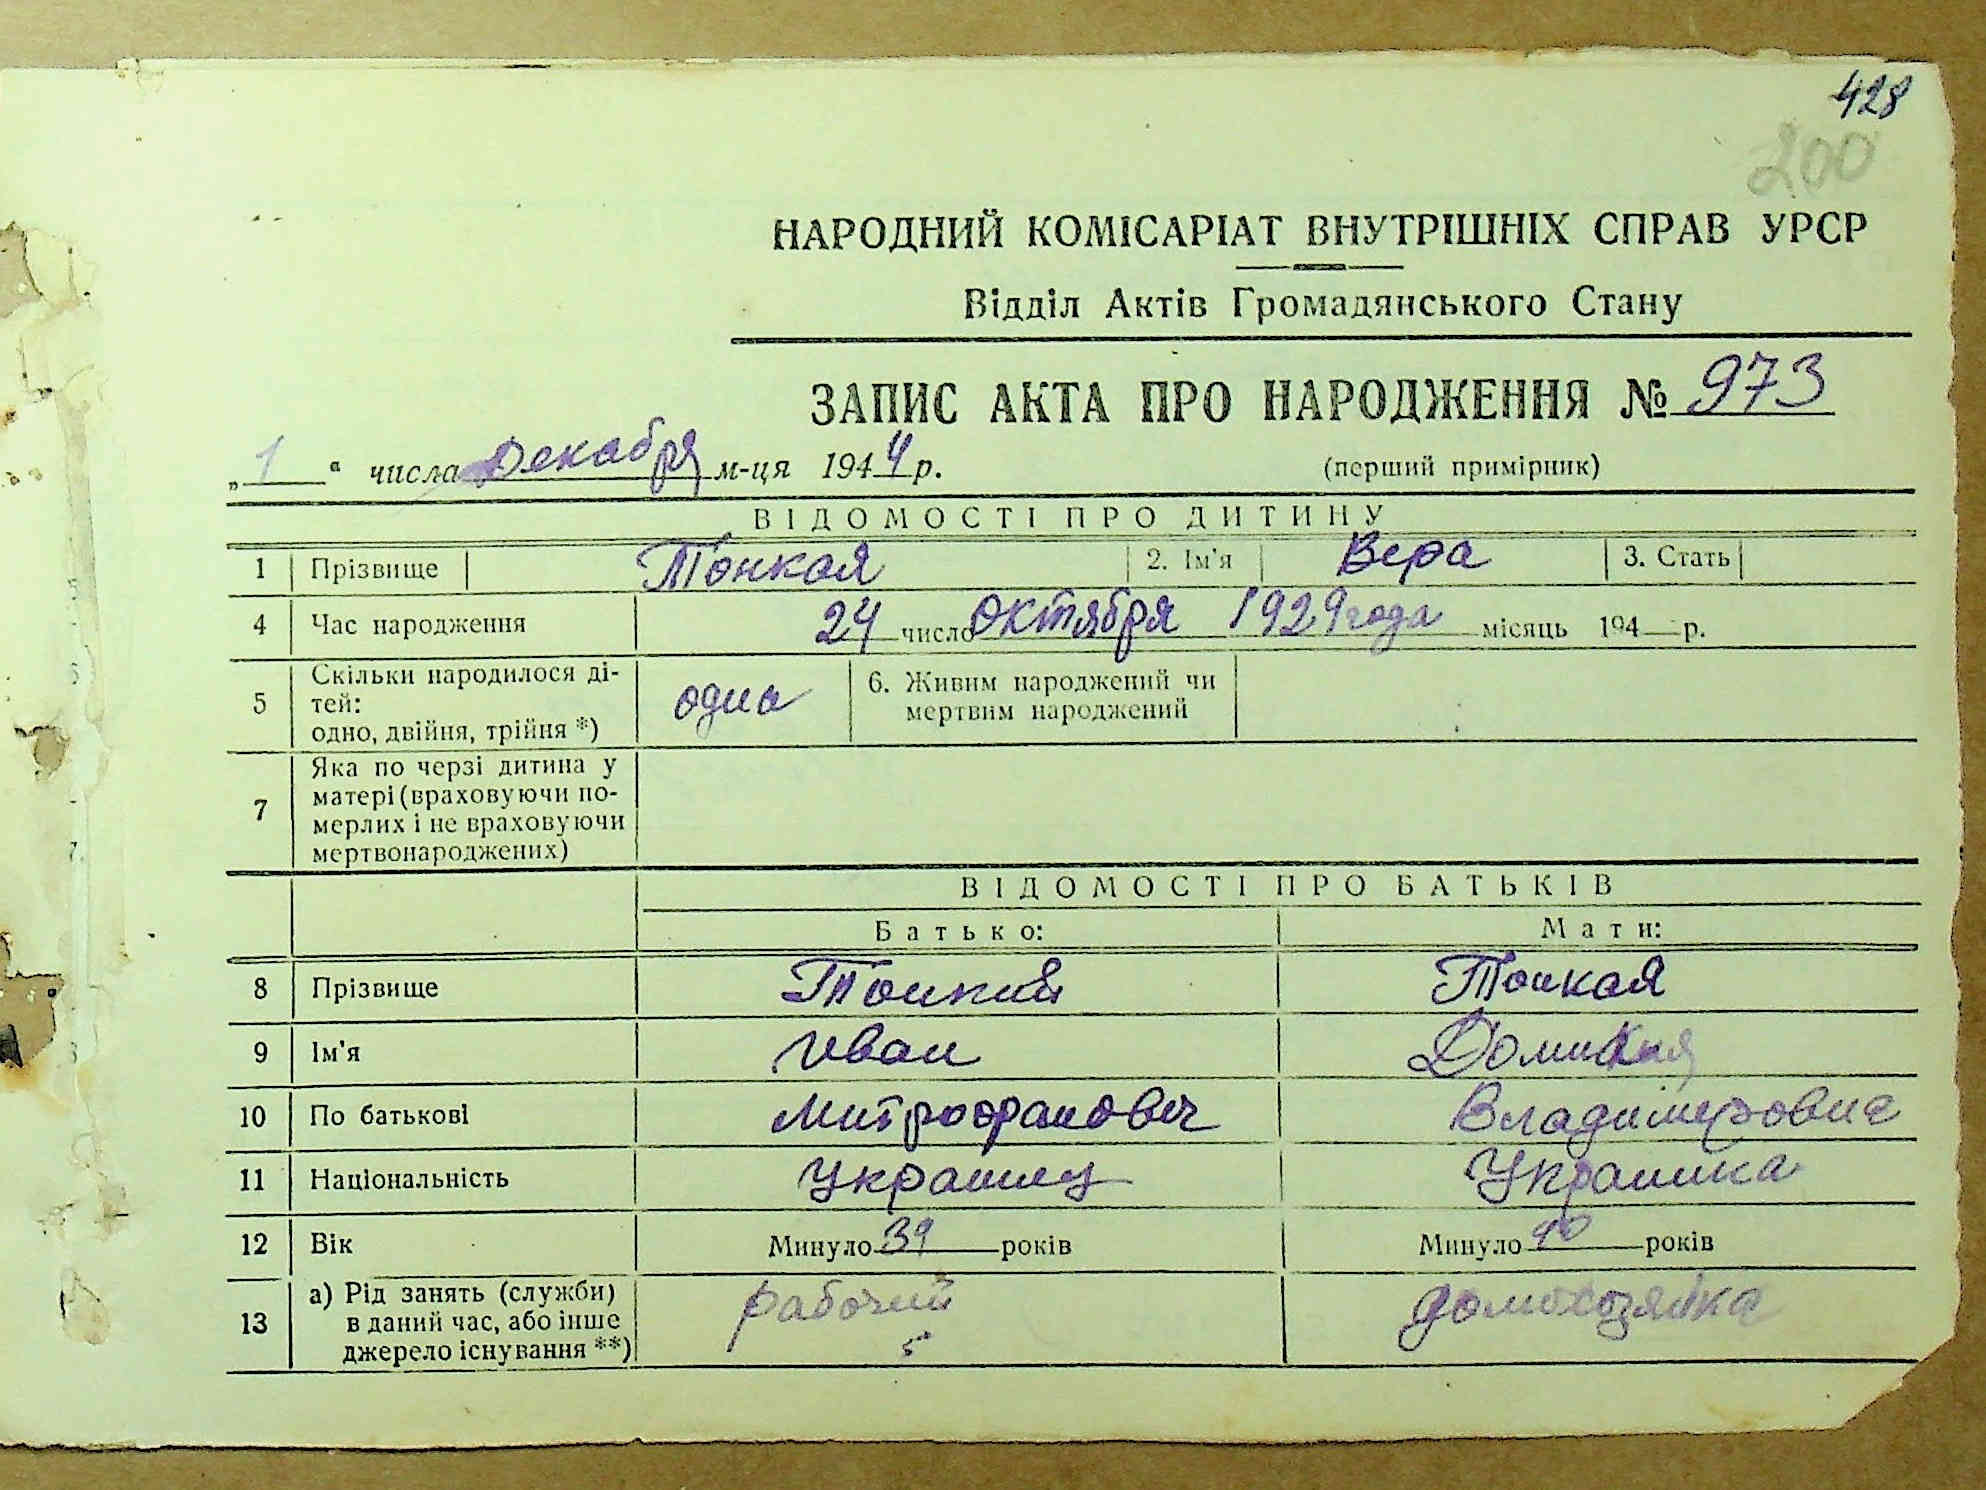 428
200
НАРОДНИЙ КОМІСАРІАТ ВНУТРІШНІХ СПРАВ УРСР
Відділ Актів Громадянського Стану
ЗАПИС АКТА ПРО НАРОДЖЕННЯ № 973
„1" числа Декабря м-ця 1944 р. (перший примірник)
ВІДОМОСТІ ПРО ДИТИНУ
1 Прізвище Тонкая 2. Ім'я Вера 3. Стать
4 Час народження 24 число Октября 1929 года місяць 194 р.
5 Скільки народилося ді-
тей:
одно, двійня, трійня *) одна 6. Живим народжений чи
мертвим народжений
7 Яка по черзі дитина у
матері (враховуючи по-
мерлих і не враховуючи
мертвонароджених)
ВІДОМОСТІ ПРО БАТЬКІВ
Батько: Мати:
8 Прізвище Тонкий Тонкая
9 Ім'я Иван
10 По батькові Митрофанович Владимировна
11 Національність Украинец Украинка
12 Вік Минуло 39 років Минуло 40 років
13 а) Рід занять (служби)
в даний час, або інше
джерело існування **) рабочий домохозяйка